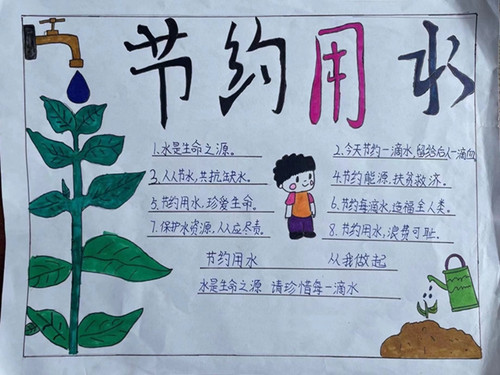 节约用水
1.水是生命之源。
2.今天节约一滴水,留给后人一滴血
3.人人节水,共抗缺水。
4.节约能源,扶贫救济。
5.节约用水,珍爱生命。
6.节约每滴水,造福全人类。
7.保护水资源,人人应尽责。
8.节约用水,浪费可耻。
节约用水 从我做起
水是生命之源 请珍惜每一滴水